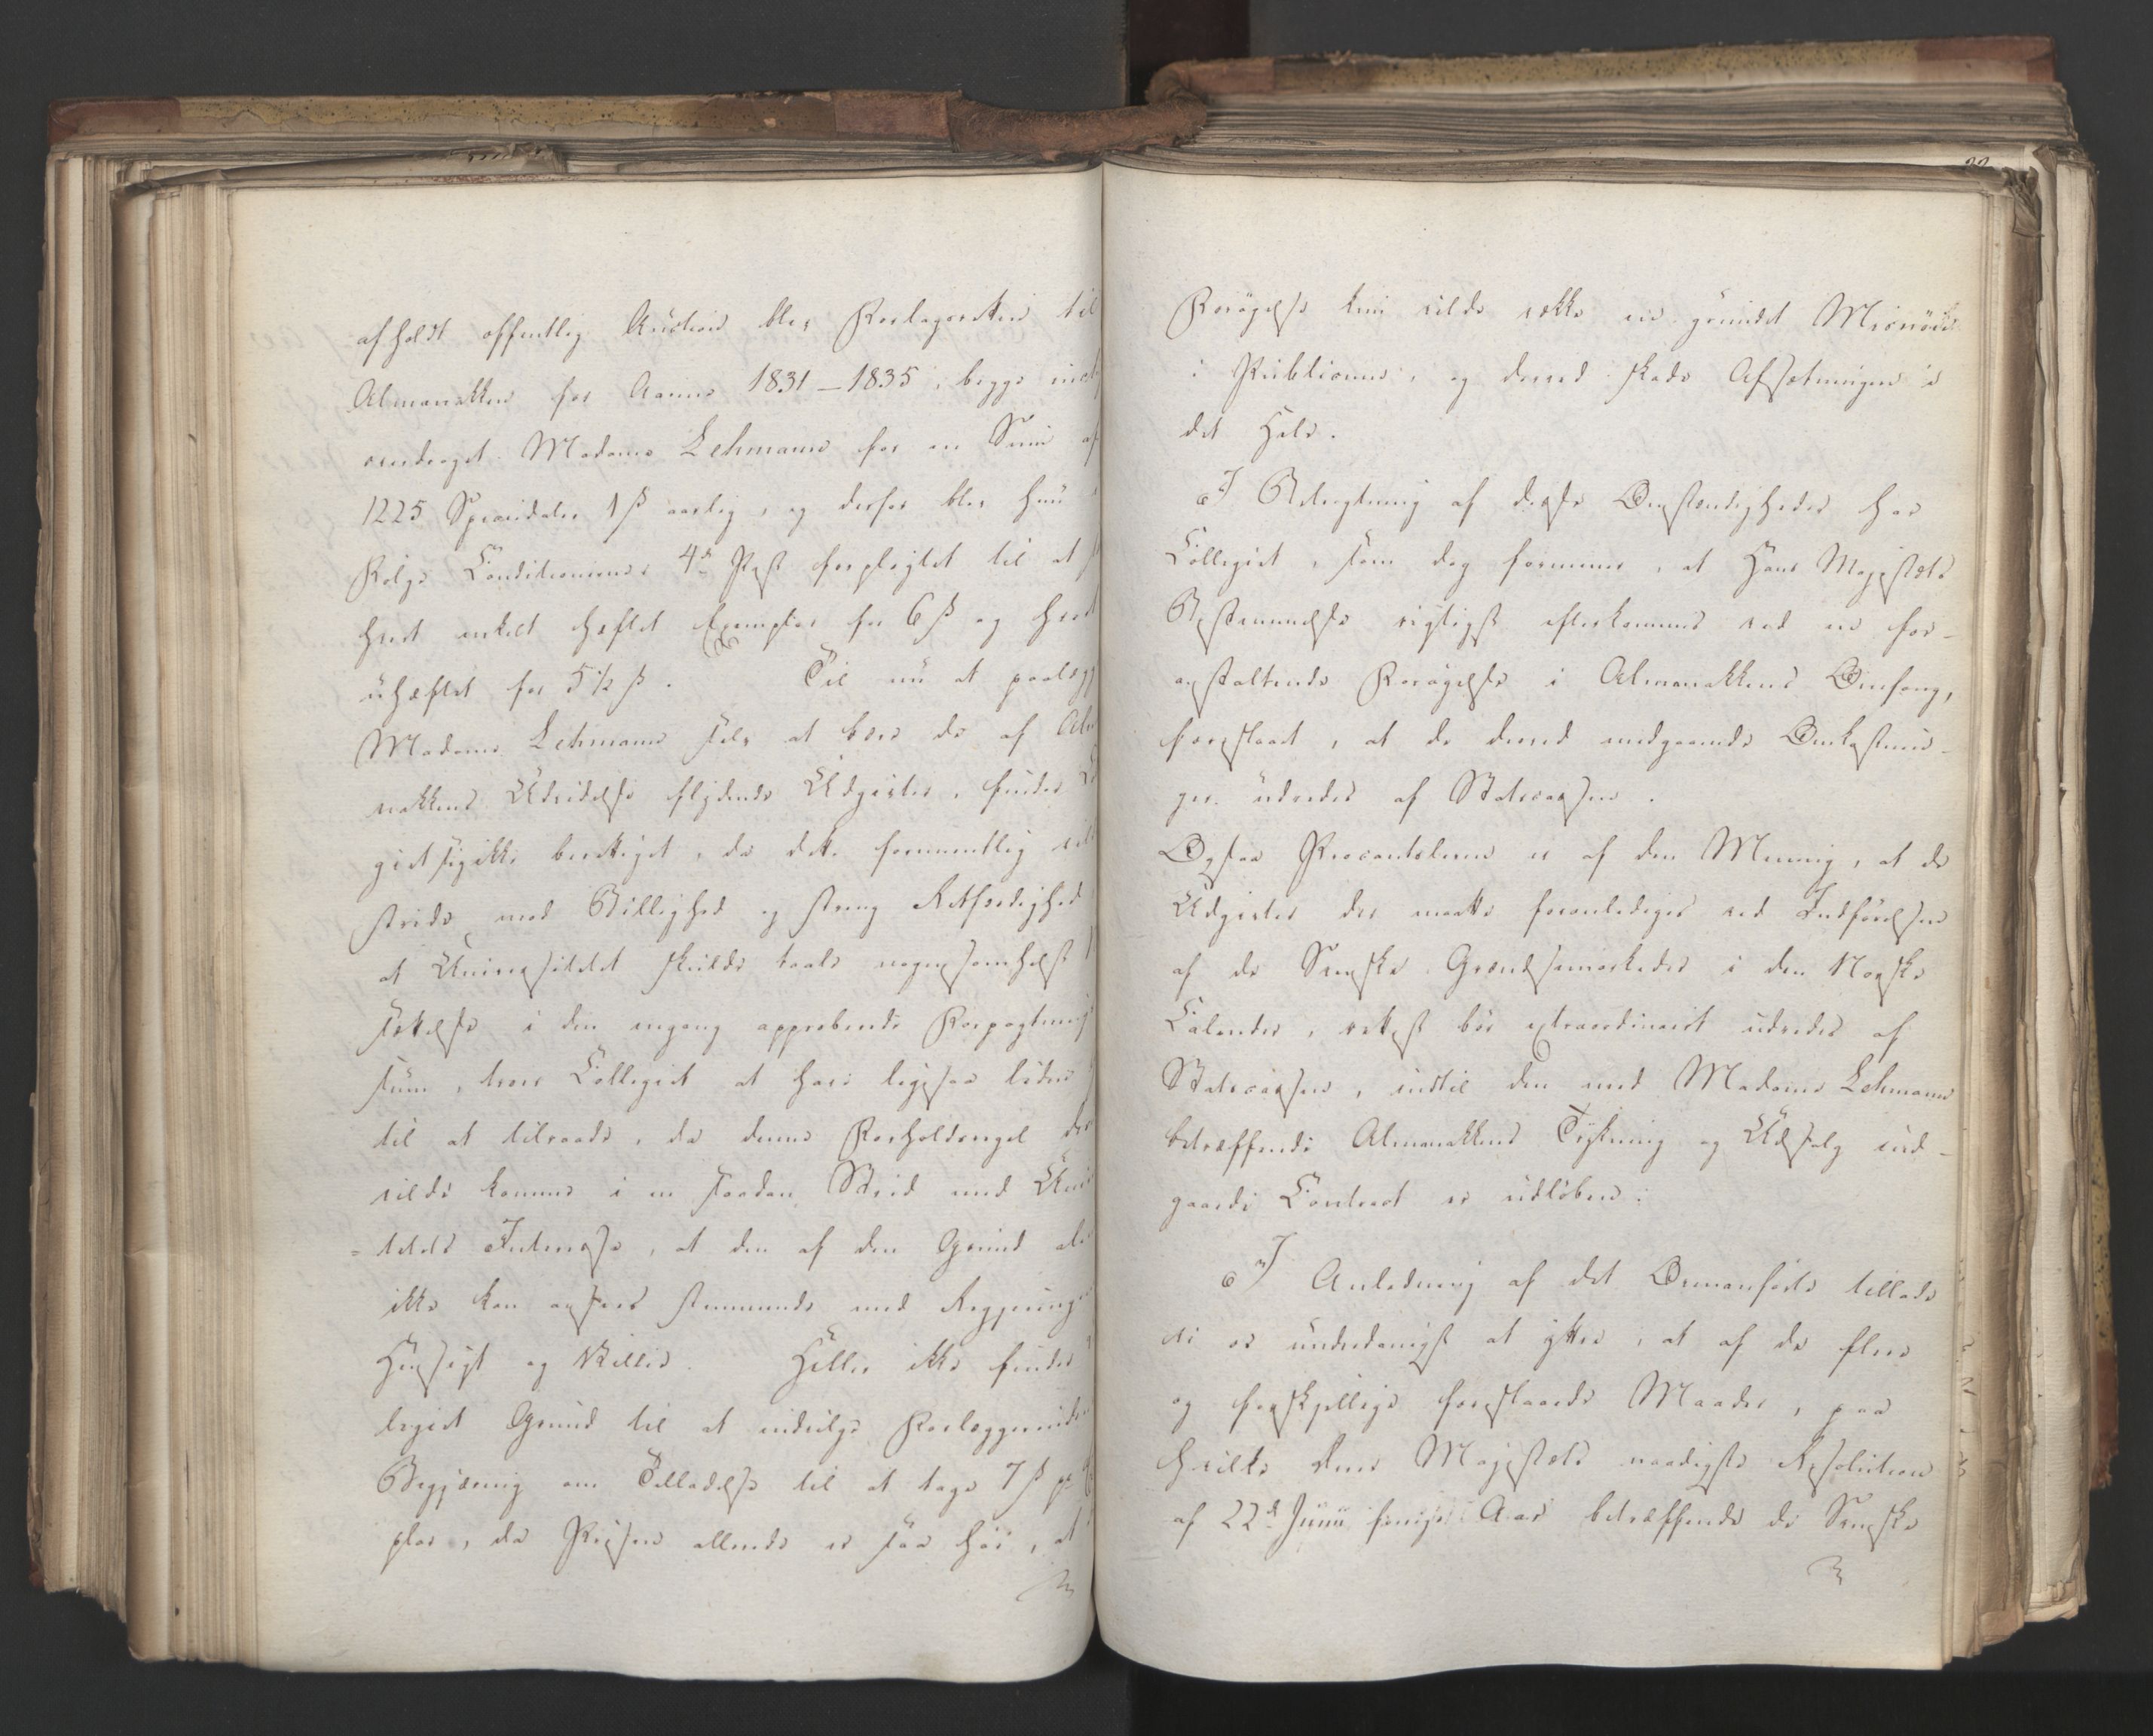 afholdt offentlig Auction blev Forlagsretten til
Almanakken for Aarene 1831–1835, begge incl
overdraget Madame Lehmann for en Sum af
1225 Speciedaler 1 ß aarlig, og derfor blev hun
Følge Conditionernes 4de Post forpligtet til at
hvert enkelt heftet Exemplar for 6 ß og hvert
uheftet for 5 1/2 ß. Til nu at paalægge
Madame Lehmann selv at bære de af Alma
nakkens Udvidelse flydende Udgivter, finder Col
giet sig ikke berettiget, da dette formeentlig vil
stride mod Billighed og streng Retfærdighed
at Universitetet skulde taale nogensomhelst
sættelse i den engang approberede Forpagtnings
sum, troer Collegiet at have ligesaa liden
til at tilraade, da denne Forholdsregel der
vilde komme i en saadan Strid med Univ
= tetets Interesse, at den af den Grund al
ikke kan ansees stemmende med Regjeringens
Hensigt og Villie. Heller ikke finder
legiet Grund til at indvilge Forlæggerinden
Begjæring om Tilladelse til at tage 7 ß pr
plar, da Prisen allerede er saa høi, at
22
Forøgelse kun vilde vække en grundet Misnøie
i Publicum, og derved skade Afsætningen i
det Hele.
I Betragtning af disse Omstændigheder har
Collegiet, som dog formener, at Hans Majestæts
Bestemmelse rigtigst efterkommes ved en for-
anstaltende Forøgelse i Almanakkens Omfang,
foreslaaet, at de derved medgaaende Omkostnin-
ger udredes af Statscassen.
Ogsaa Procantsleren er af den Mening, at de
Udgivter der maatte foranlediges ved Indførelsen
af de Svenske Grændsemarkeder i den Norske
Calender, rettest bør extraordinairt udredes af
Statscassen, indtil den med Madame Lehmann
betræffende Almanakkens Trykning og Udsalg ind-
gaaede Contract er udløben.
I Anledning af det Ovenanførte tillade
vi os underdanigst at yttre, at af de flere
og forskjellige foreslaaede Maader, paa
hvilke Deres Majestæts naadigste Resolution
af 22de Junii forrige Aar betræffende de Svenske